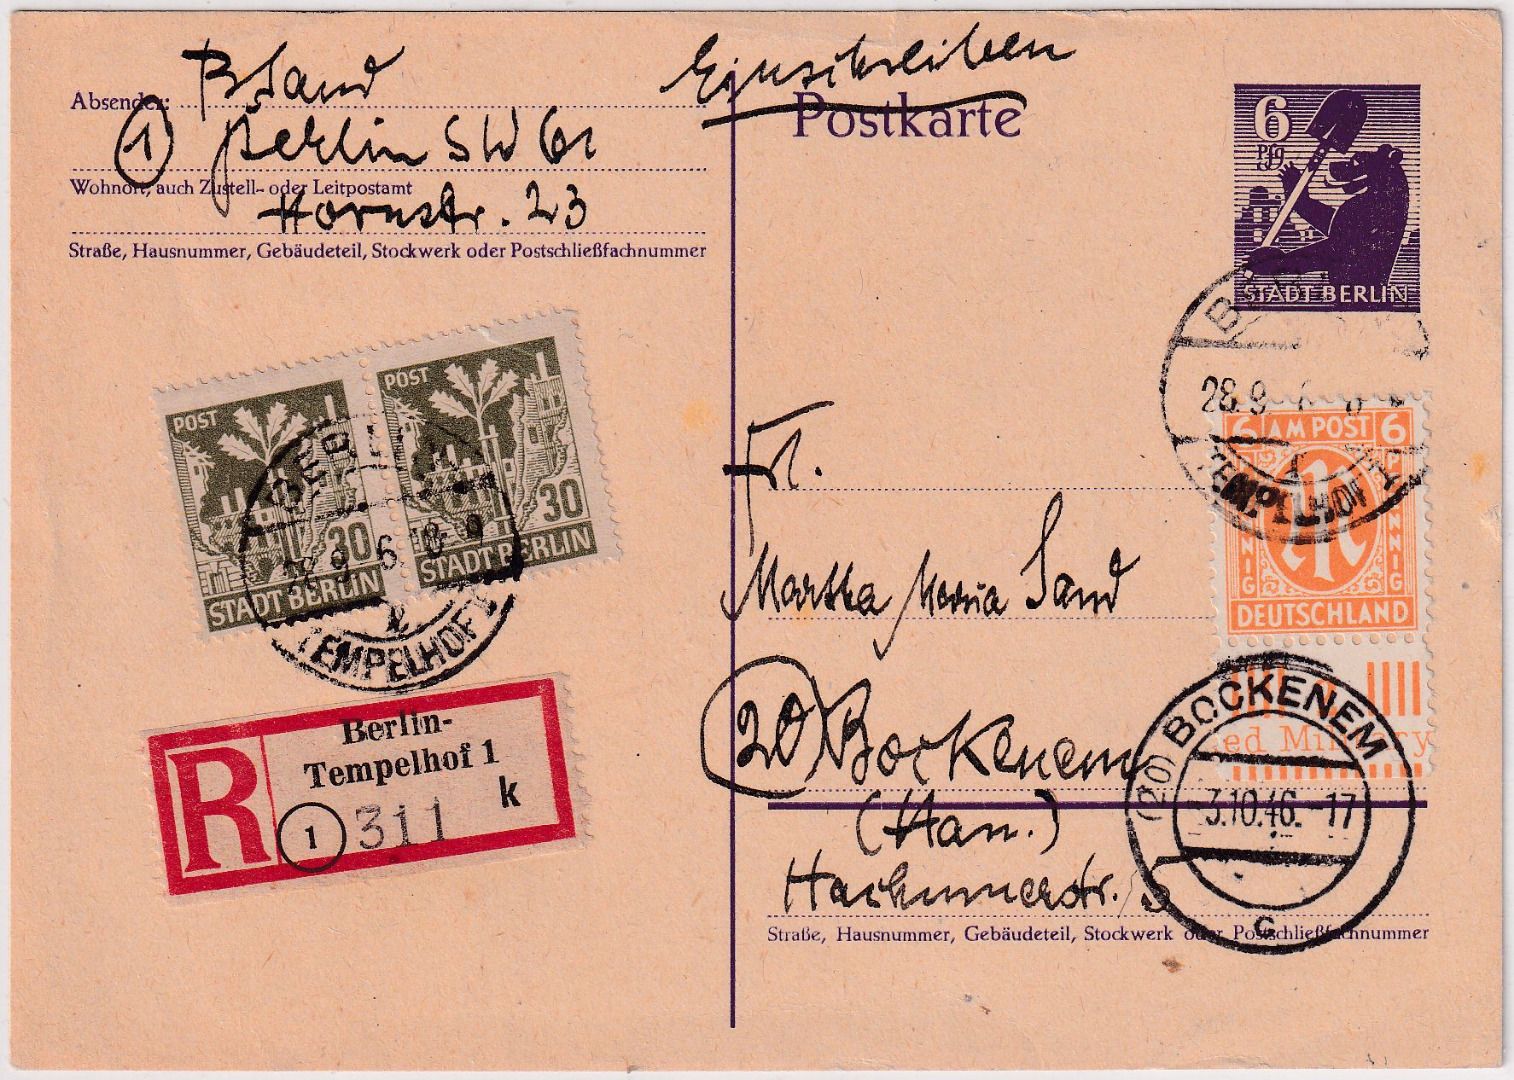 Einschreiben
Absender: B Sand
① Berlin SW 61
Wohnort, auch Zustell- oder Leitpostamt
Hornstr. 23
Straße, Hausnummer, Gebäudeteil, Stockwerk oder Postschließfachnummer
Postkarte
6
Pfg
STADT BERLIN
28.9
TEMPELHOF
6 AM POST 6
PFENNIG
PFENNIG
DEUTSCHLAND
ed Military
POST
30
STADT BERLIN
POST
30
STADT BERLIN
28.9.6.18-9
TEMPELHOF 1
R
Berlin-
Tempelhof 1
① 311 k
Frl.
Martha Maria Sand
20 Bockenem
(Han.)
Straße, Hausnummer, Gebäudeteil, Stockwerk oder Postschließfachnummer
(20) BOCKENEM
-3.10.46.-17
c